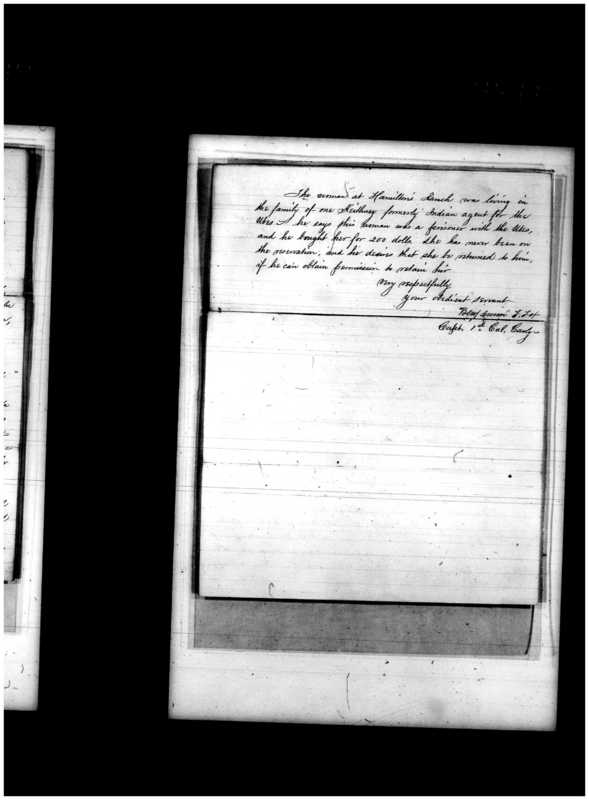 The woman at Hamilton's Ranch was living in
the family of one Keithley formerly Indian agent for the
Utes - he says this woman was a prisoner with the Utes,
and he bought her for 200 dolls. She has never been on
the reservation, and he desires that she be returned to him,
if he can obtain permission to retain her
Very respectfully
your obedient servant
Fox
Capt. 1st Cal. Cavly-